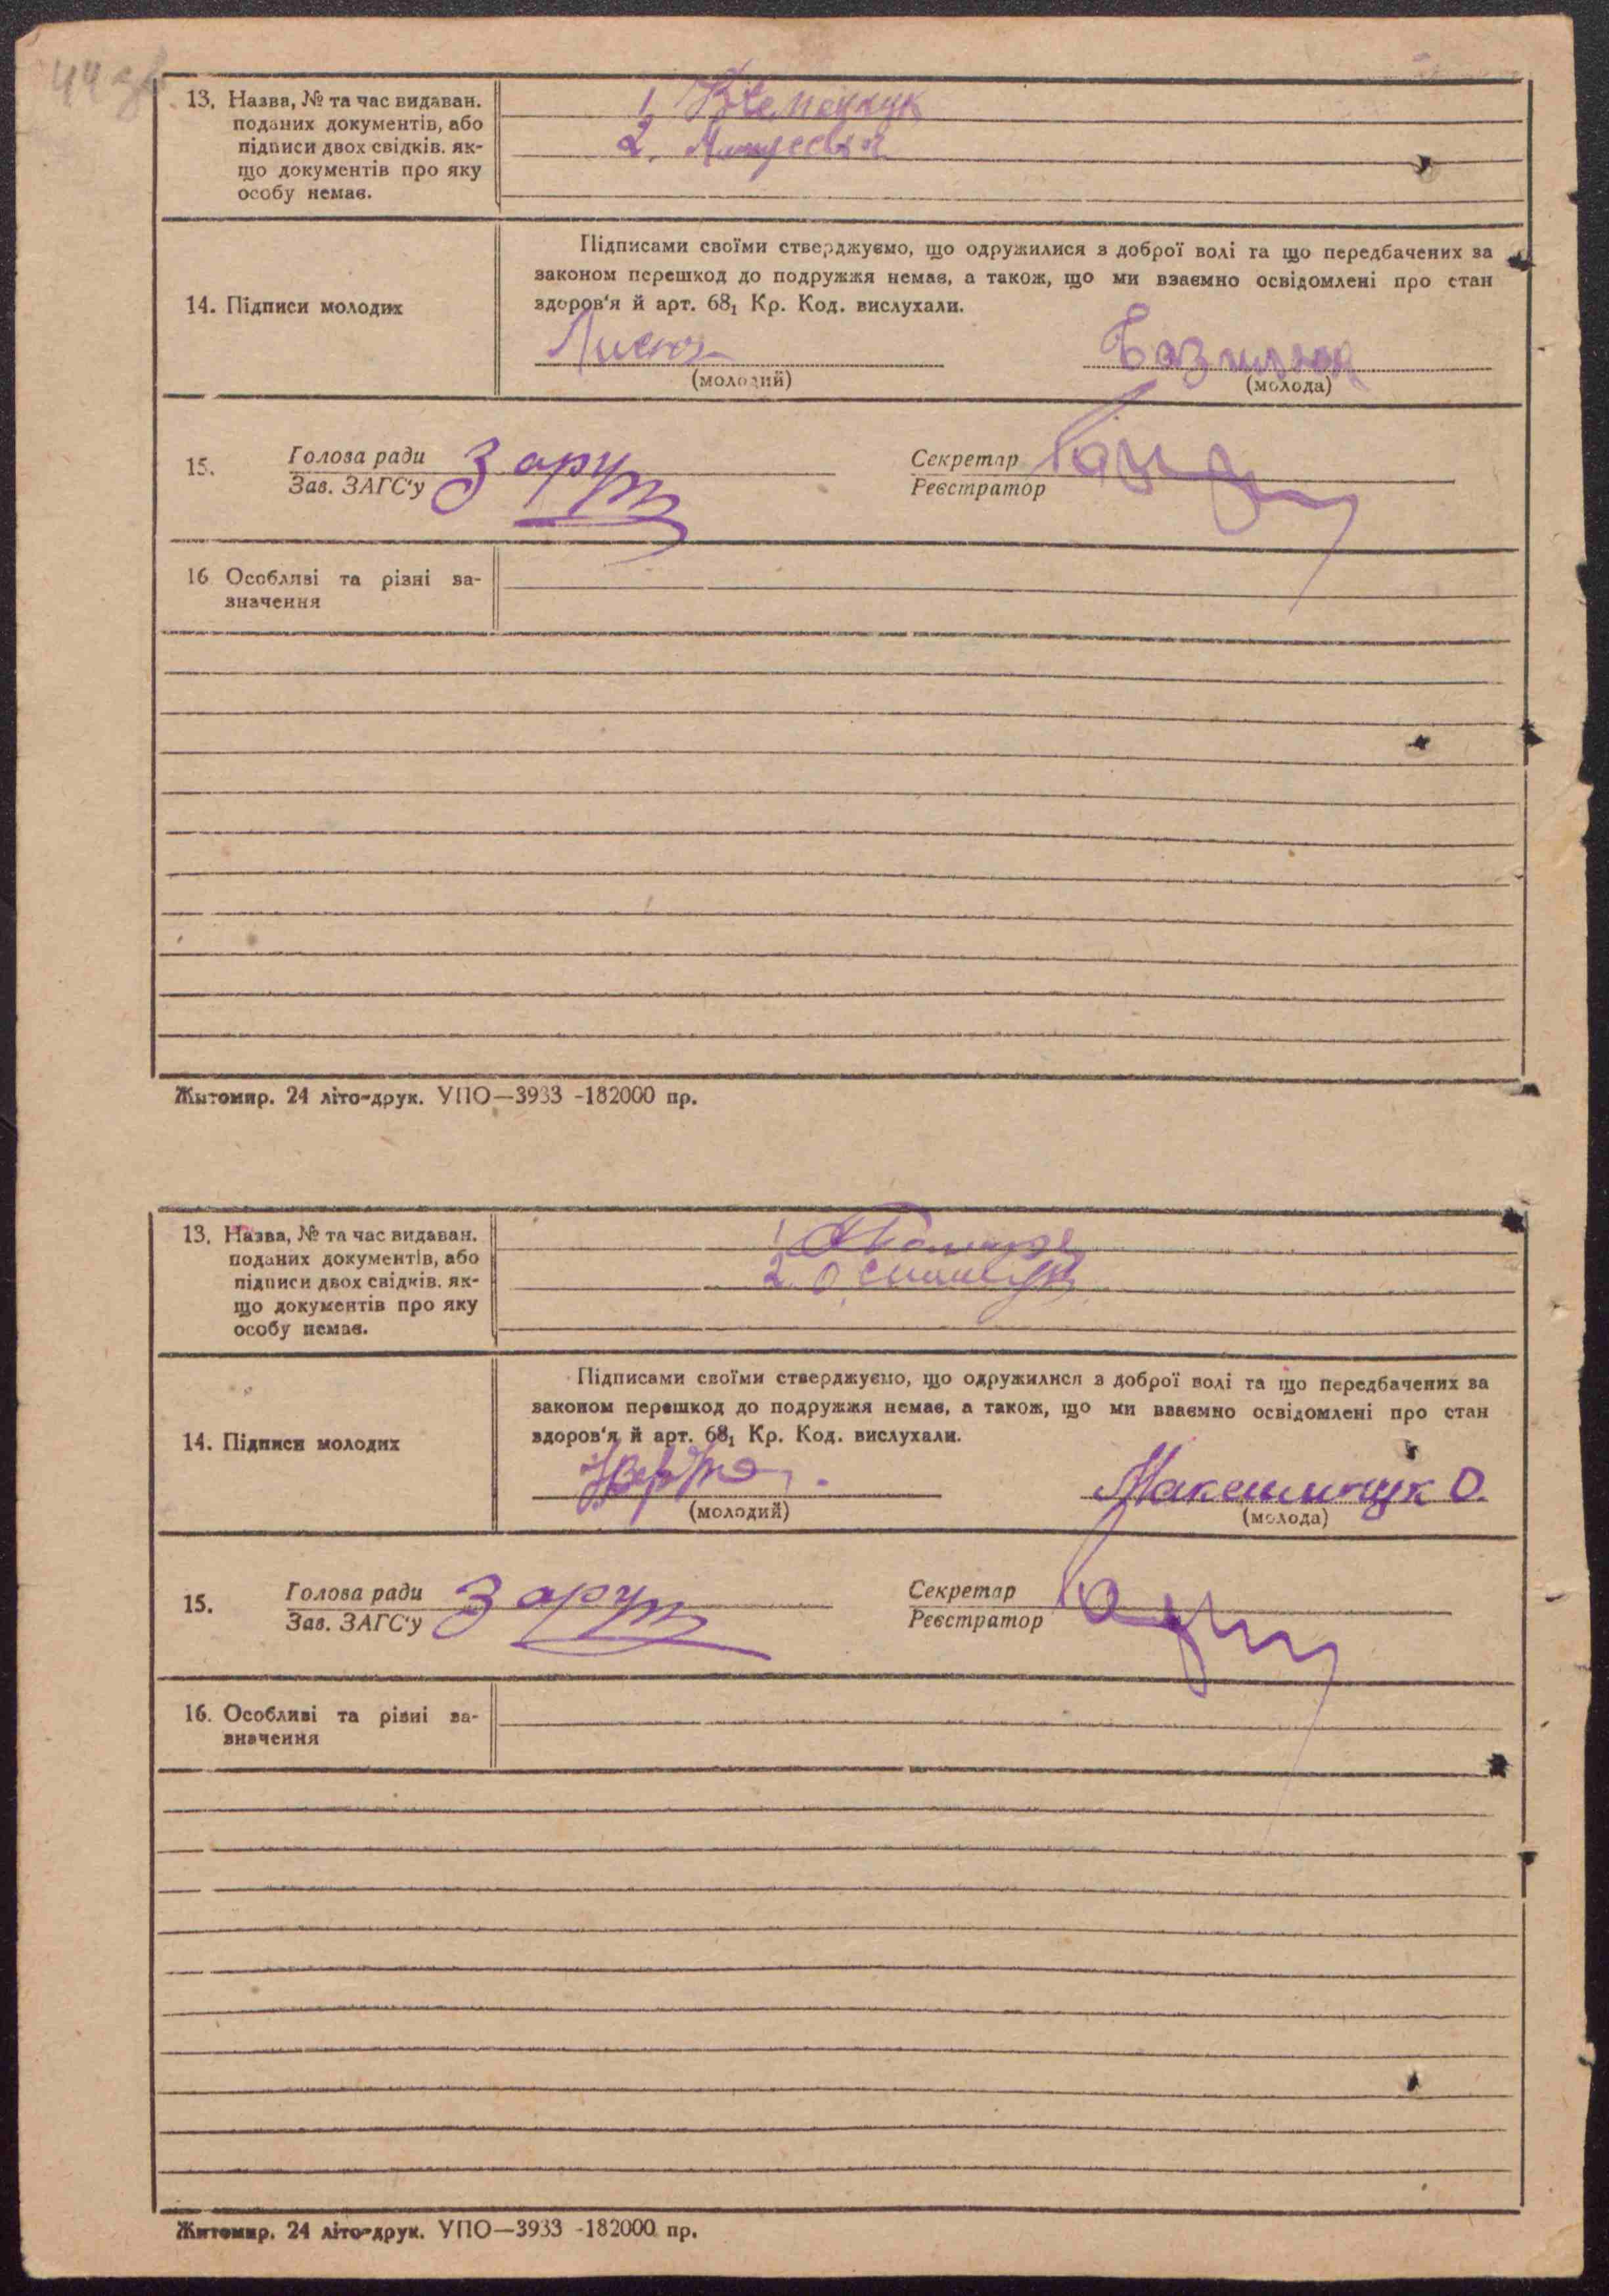 44 зв
13. Назва, № та час видаван.
поданих документів, або
підписи двох свідків. як-
що документів про яку
особу немає.
1,
2.
14. Підписи молодих
Підписами своїми стверджуємо, що одружилися з доброї волі та що передбачених за
законом перешкод до подружжя немає, а також, що ми взаємно освідомлені про стан
здоров'я й арт. 68₁ Кр. Код. вислухали.
(молодий)
(молода)
15. Голова ради
Зав. ЗАГС'у
Секретар
Реєстратор
16 Особливі та різні за-
значення
Житомир. 24 літо-друк. УПО—3933 -182000 пр.
13. Назва, № та час видаван.
поданих документів, або
підписи двох свідків. як-
що документів про яку
особу немає.
1
2.
14. Підписи молодих
Підписами своїми стверджуємо, що одружилися з доброї волі та що передбачених за
законом перешкод до подружжя немає, а також, що ми взаємно освідомлені про стан
здоров'я й арт. 68₁ Кр. Код. вислухали.
Максимчук О.
(молодий)
(молода)
15. Голова ради
Зав. ЗАГС'у
Секретар
Реєстратор
16. Особливі та різні за-
значення
Житомир. 24 літо-друк. УПО—3933 -182000 пр.